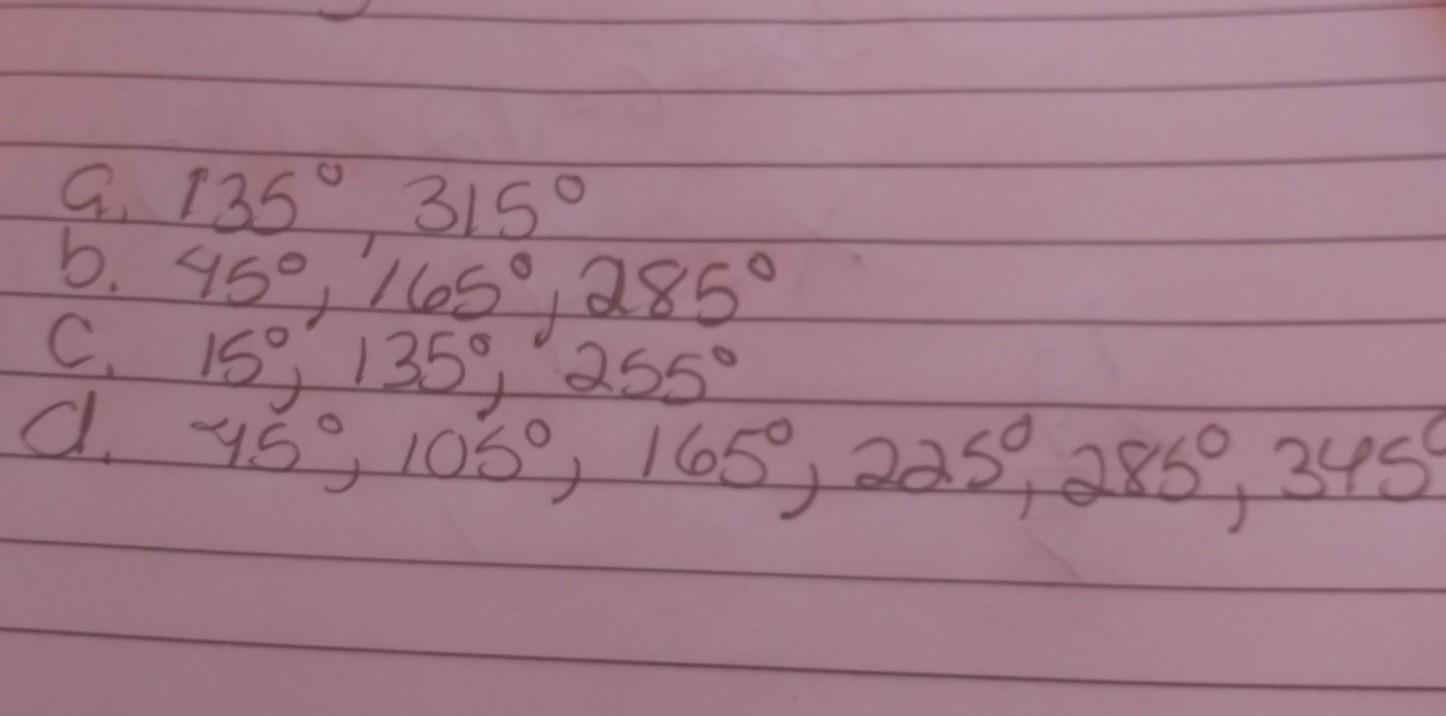 a. 135°, 315°
b. 45°, 165°, 285°
c. 15°, 135°, 255°
d. 45°, 105°, 165°, 225°, 285°, 345°